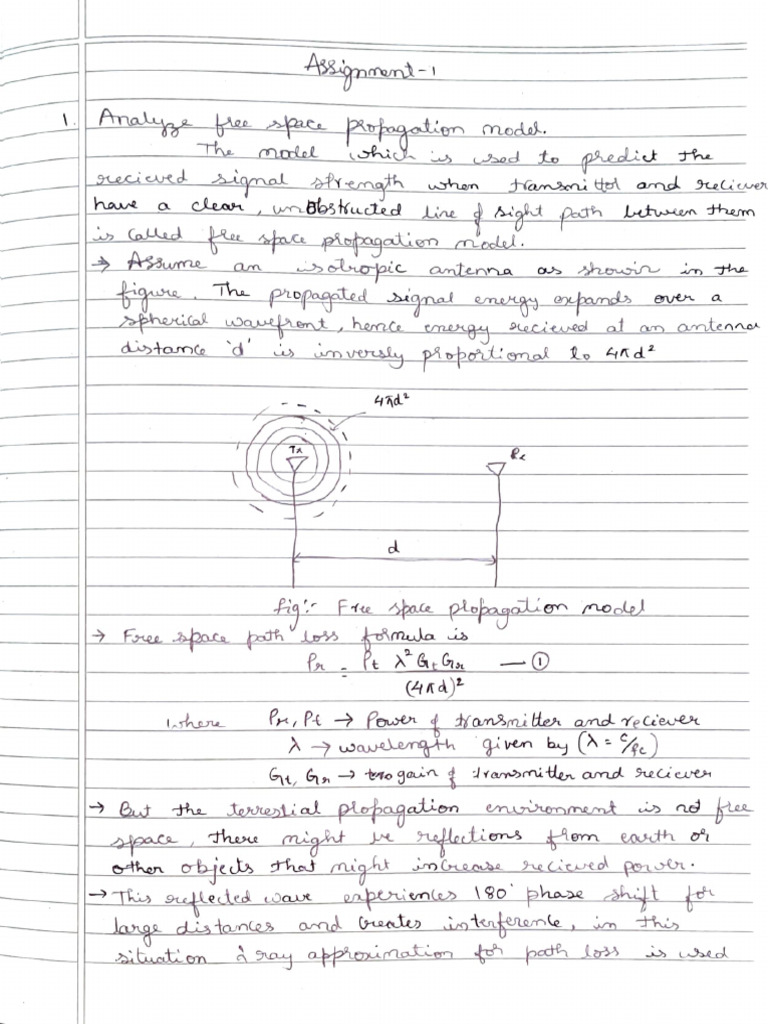 Assignment-1
1. Analyze free space propagation model.
The model which is used to predict the
recieved signal strength when transmittor and reciever
have a clear, unobstructed line of sight path between them
is called free space propagation model.
→ Assume an isotropic antenna as shown in the
figure. The propagated signal energy expands over a
spherical wavefront, hence energy recieved at an antenna
distance 'd' is inversly proportional to 4πd²
4πd²
Tx
Rx
d
fig:- Free space propagation model
→ Free space path loss formula is
Pr = Pt λ² Gt Gr — ①
(4πd)²
where Pr, Pt → Power of transmitter and reciever
λ → wavelength given by (λ = c/fc)
Gt, Gr → gain of transmitter and reciever
→ But the terrestial propagation environment is not free
space, there might be reflections from earth or
other objects that might increase recieved power.
→ This reflected wave experiences 180° phase shift for
large distances and creates interference, in this
situation 2 ray approximation for path loss is used